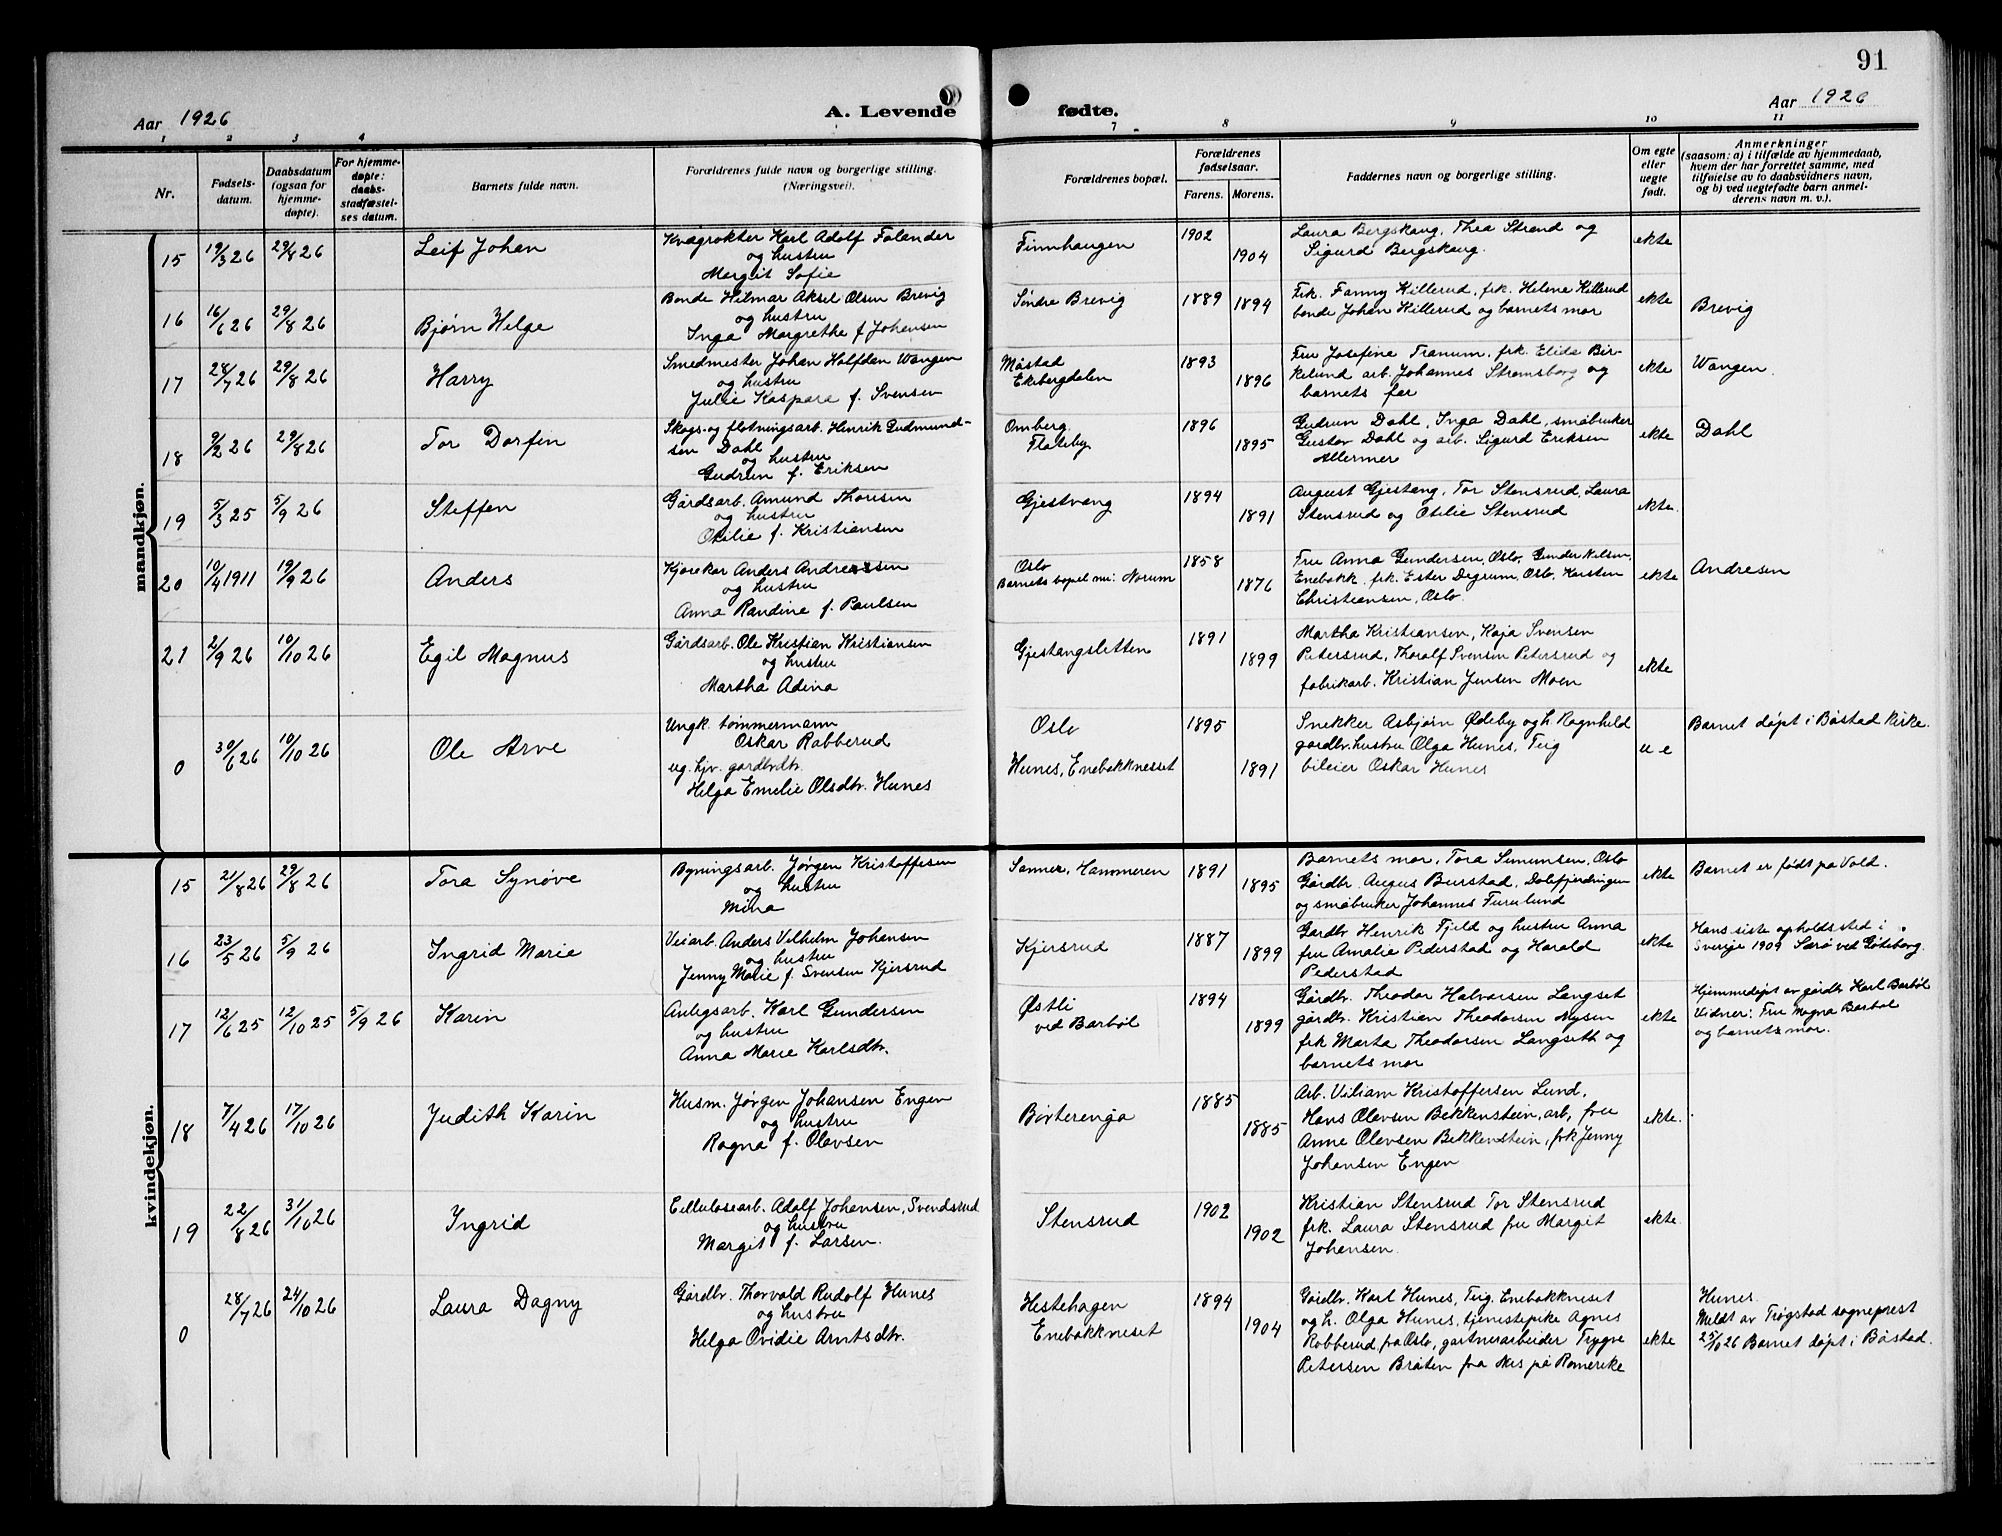 91
Aar 1926
A. Levende
fødte.
Aar 1926
1 2 3 4 7 8 9 10 11
Nr.
Fødsels-
datum.
Daabsdatum
(ogsaa for
hjemme-
døpte).
For hjemme-
døpte:
daabs-
stadfæstel-
ses datum.
Barnets fulde navn.
Forældrenes fulde navn og borgerlige stilling.
(Næringsvei).
Forældrenes bopæl.
Forældrenes
fødselsaar.
Farens. Morens.
Faddernes navn og borgerlige stilling.
Om egte
eller
uegte
født.
Anmerkninger
(saasom: a) i tilfælde av hjemmedaab,
hvem der har forrettet samme, med
tilføielse av to daabsvidners navn,
og b) ved uegtefødte barn anmel-
derens navn m. v.).
mandkjøn.
15 19/3 26 29/8 26 Leif Johan
Kvægrøkter Karl Adolf Falander
og hustru
Margit Sofie
Finnhaugen
1902 1904
Laura Bergskaug, Thea Strand og
Sigurd Bergskaug.
ekte
16 16/6 26 29/8 26 Bjørn Helge
Bonde Hilmar Aksel Olsen Brevig
og hustru
Inga Margrethe f. Johansen
Søndre Brevig
1889 1894
Frk. Fanny Killerud, frk. Helene Killerud
bonde Johan Killerud og barnets mor
ekte
Brevig
17 28/7 26 29/8 26 Harry
Smedmester Johan Halfdan Wangen
og hustru
Julie Kaspara f. Svensen
Måstad
Ekebergdalen
1893 1896
Fru Josefine Tranum, frk. Elida Bir-
kelund arb. Johannes Strømsborg og
barnets far
ekte
Wangen.
18 9/2 26 29/8 26 Tor Dorfin
Skogs- og fløtningsarb. Henrik Gudmund-
sen Dahl
og hustru
Gudrun f. Eriksen
Omberg.
Flateby
1896 1895
Gudrun Dahl, Inga Dahl, småbruker
Gustav Dahl og arb. Sigurd Eriksen
Allermer
ekte
Dahl
19 5/3 25 5/9 26 Steffen
Gårdsarb. Amund Thoresen
og hustru
Otilie f. Kristiansen
Gjestvang
1894 1891
August Gjestang, Tor Stensrud, Laura
Stensrud og Otilie Stensrud
ekte.
20 10/4 1911 19/9 26 Anders
Kjørekar Anders Andreassen
og hustru
Anna Randine f. Paulsen
Oslo
Barnets bopel nu: Norum
1858 1876
Fru Anna Gundersen, Oslo, Gunder Nilsen,
Enebakk. frk. Ester Degrum, Oslo, Karsten
Christiansen, Oslo.
ekte
Andresen
21 2/9 26 10/10 26 Egil Magnus
Gårdsarb. Ole Kristian Kristiansen
og hustru
Martha Adina
Gjestangsletten
1891 1899
Martha Kristiansen, Kaja Svensen
Petersrud, Thoralf Svensen Petersrud og
fabrikarb. Kristian Jensen Moen
ekte
0 30/6 26 10/10 26 Ole Arve
Ungk. tømmermann
Oskar Robberud
ug. hjv. gardbrdtr.
Helga Emelie Olsdtr. Hunes
Oslo
Hunes, Enebakkneset
1895 1891
Snekker Asbjørn Ødeby og h. Ragnhild
gardbr.hustru Olga Hunes, Tug
bileier Oskar Hunes
u e
Barnet døpt i Båstad kirke.
kvindekjøn.
15 21/8 26 29/8 26 Tora Synøve
Bygningsarb. Jørgen Kristoffersen
og hustru
Mina
Sanner, Hammeren
1891 1895
Barnets mor, Tora Simunsen, Oslo
Gårdbr. August Burstad, Dalefjerdingen
og småbruker Johannes Furulund
ekte
Barnet er født på Vold.
16 23/5 26 5/9 26 Ingrid Marie
Veiarb. Anders Vilhelm Johansen
og hustru
Jenny Marie f. Svensen Kjersrud
Kjersrud
1887 1899
Gardbr. Henrik Fjeld og hustru Anna
fru Amalie Pederstad og Harald
Pederstad
ekte
Hans siste opholdssted i
Sverige 1909 Sarø ved Gøteborg.
17 12/6 25 12/10 25 5/9 26 Karin
Anlegsarb. Karl Gundersen
og hustru
Anna Marie Karlsdtr.
Østli
ved Barbøl
1894 1899
Gårdbr. Theodor Halvorsen Langset
gårdbr. Kristian Theodorsen Nysen
frk Marta Theodorsen Langseth og
barnets mor
ekte
Hjemmedøpt av gårdbr Karl Barbøl
Vidner: Fru Magna Barbøl
og barnets mor.
18 7/4 26 17/10 26 Judith Karin
Husm. Jørgen Johansen Engen
og hustru
Ragna f. Olavsen
Børterenga
1885 1885
Arb. Viliam Kristoffersen Lund,
Hans Olavsen Bekkenstein, arb, fru
Anne Olavsen Bekkenstein, frk Jenny
Johansen Engen
ekte.
19 22/8 26 31/10 26 Ingrid
Cellulosearb. Adolf Johansen, Svendsrud
og hustru
Margit f. Larsen.
Stensrud
1902 1902
Kristian Stensrud Tor Stensrud
frk. Laura Stensrud fru Margit
Johansen.
ekte.
0 28/7 26 24/10 26 Laura Dagny
Gårdbr. Thorvald Rudolf Hunes
og hustru
Helga Ovidie Arntsdtr.
Hestehagen
Enebakkneset
1894 1904
Gårdbr. Karl Hunes, Tug. Enebakkneset
og h. Olga Hunes, tjenestepike Agnes
Robberud, fra Oslo, gartnerarbeider Trygve
Petersen Bråten fra Nes på Romerike
ekte
Hunes.
Meldt av Trøgstad sogneprest
25/10 26 Barnet døpt i Båstad.